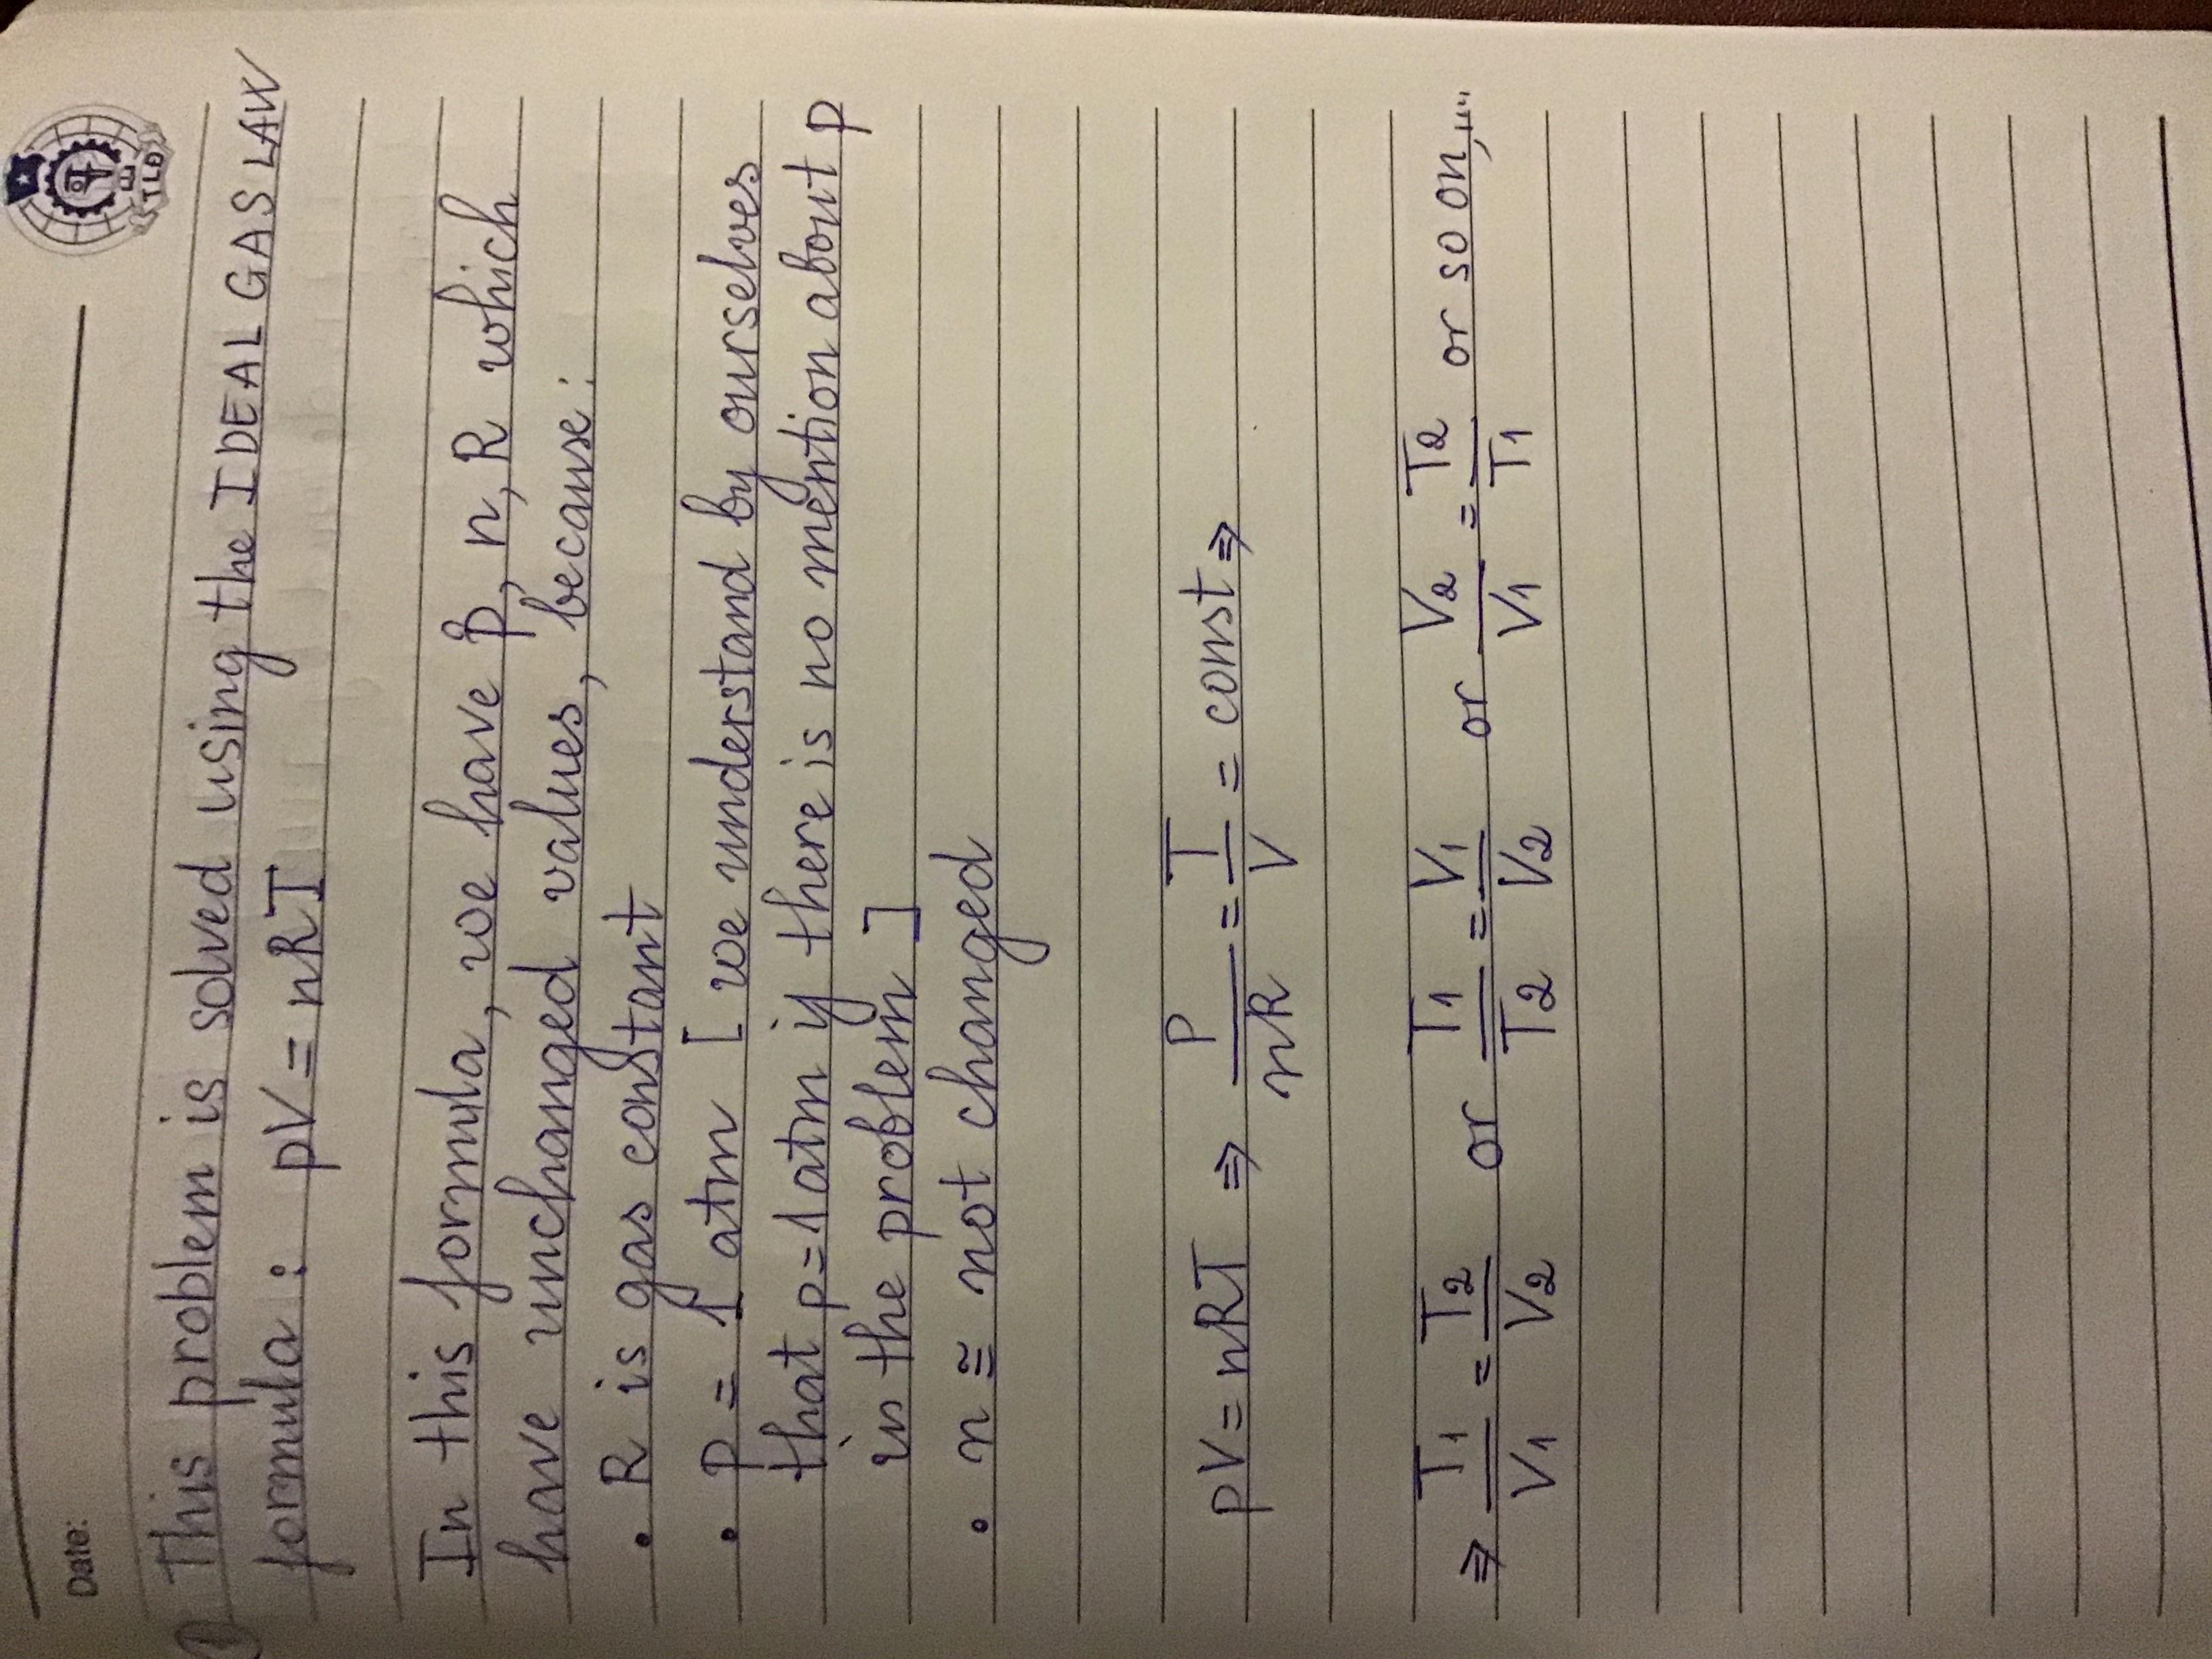 Date:
TLĐ
① This problem is solved using the IDEAL GAS LAW
formula : pV = nRT
In this formula, we have p, n, R which
have unchanged values, because :
• R is gas constant
• P = 1 atm [ we understand by ourselves
that p = 1atm if there is no mention about p
in the problem ]
• n ≅ not changed
pV = nRT ⇒ P/nR = T/V = const ⇒
⇒ T1/V1 = T2/V2 or T1/T2 = V1/V2 or V2/V1 = T2/T1 or so on,...